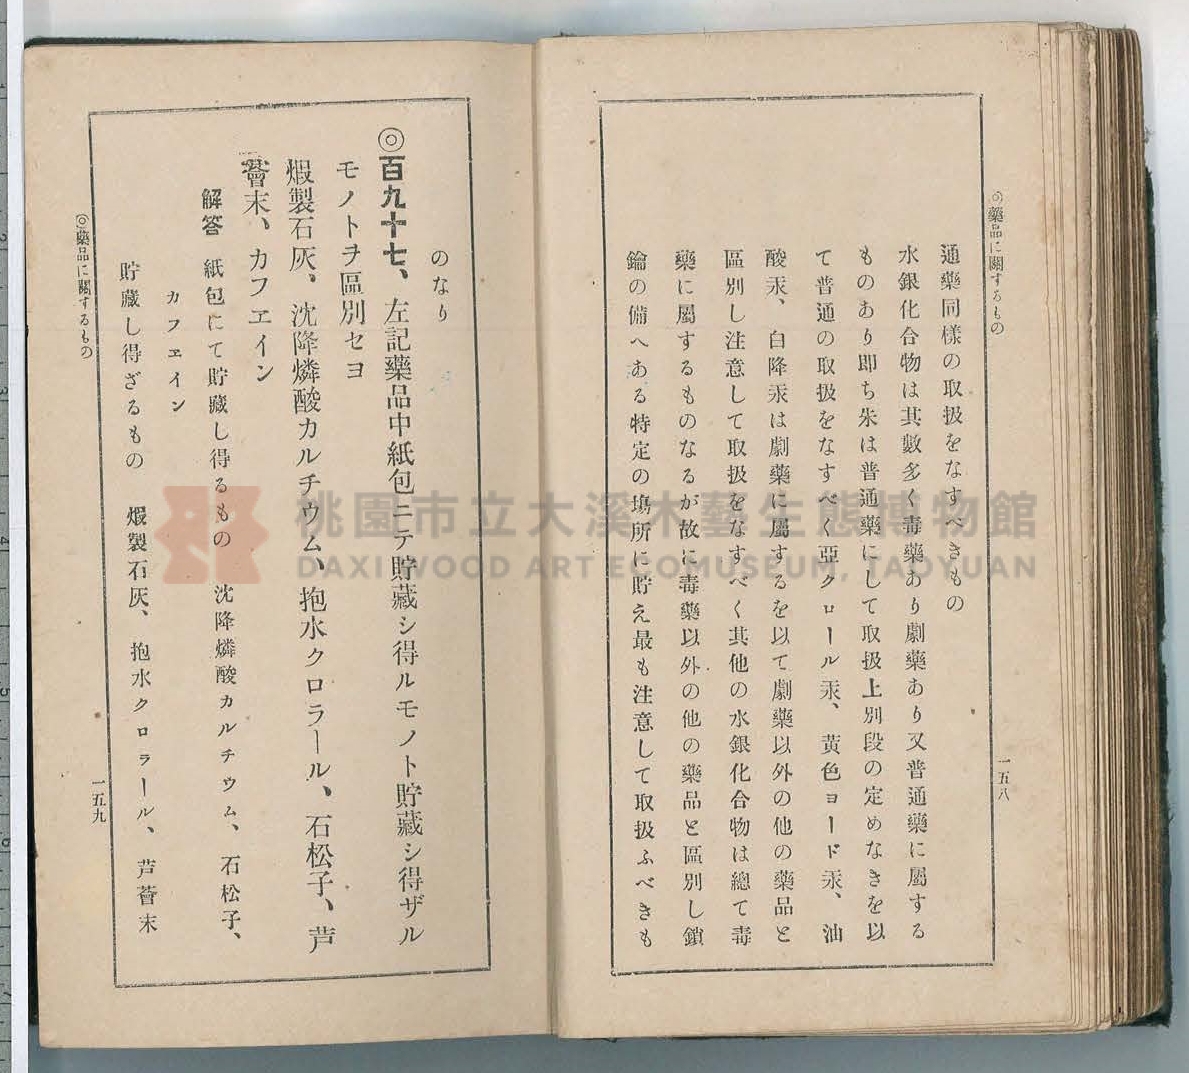 ◎藥品に關するもの
一五八
通藥同樣の取扱をなすべきもの
水銀化合物は其數多く毒藥あり劇藥あり又普通藥に屬する
ものあり即ち朱は普通藥にして取扱上別段の定めなきを以
て普通の取扱をなすべく亞クロール汞、黃色ヨード汞、油
酸汞、白降汞は劇藥に屬するを以て劇藥以外の他の藥品と
區別し注意して取扱をなすべく其他の水銀化合物は總て毒
藥に屬するものなるが故に毒藥以外の他の藥品と區別し鎖
鑰の備へある特定の塲所に貯え最も注意して取扱ふべきも
のなり
◎百九十七、左記藥品中紙包ニテ貯藏シ得ルモノト貯藏シ得ザル
モノトヲ區別セヨ
煆製石灰、沈降燐酸カルチウム、抱水クロラール、石松子、芦
薈末、カフエイン
解答 紙包にて貯藏し得るもの 沈降燐酸カルチウム、石松子、
カフエイン
貯藏し得ざるもの 煆製石灰、抱水クロラール、芦薈末
◎藥品に關するもの
一五九
桃園市立大溪木藝生態博物館
DAXI WOOD ART ECOMUSEUM, TAOYUAN